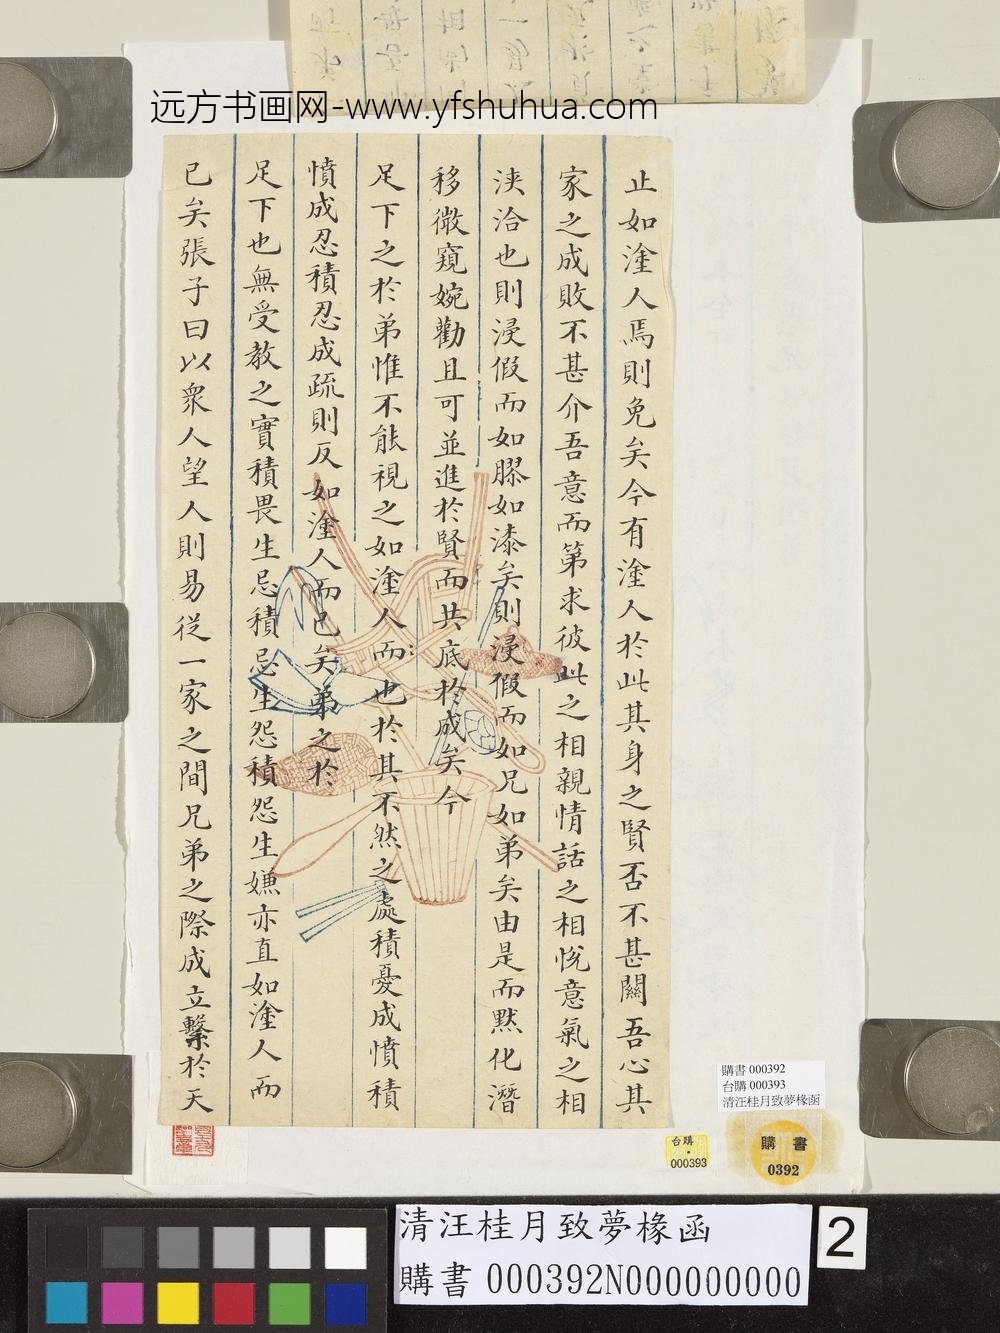 远方书画网-www.yfshuhua.com
止如塗人焉則免矣今有塗人於此其身之賢否不甚關吾心其
家之成敗不甚介吾意而第求彼此之相親情話之相悅意氣之相
浹洽也則浸假而如膠如漆矣則浸假而如兄如弟矣由是而默化潛
移微窺婉勸且可並進於賢而共底於成矣今
足下之於弟惟不能視之如塗人而也於其不然之處積憂成憤積
憤成忍積忍成疏則反如塗人而已矣弟之於
足下也無受教之實積畏生忌積忌生怨積怨生嫌亦直如塗人而
已矣張子曰以眾人望人則易從一家之間兄弟之際成立繫於天
購書 000392
台購 000393
清汪桂月致夢椽函
台購
000393
購書
0392
清汪桂月致夢椽函
購書 000392N000000000
2